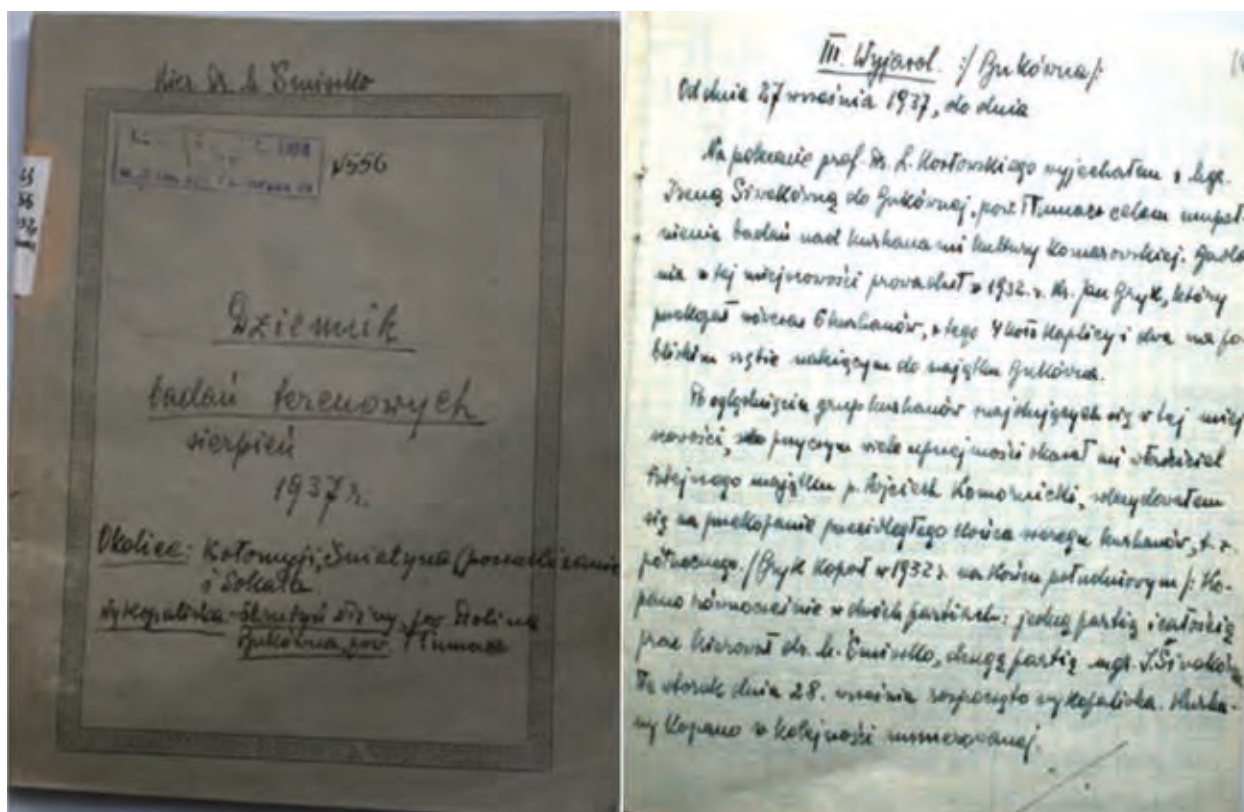 kier. Dr. M. Śmiszko
№556
Dziennik
badań terenowych
sierpień
1937 r.
Okolice: Kołomyji, Śniatyna (poszukiwania)
i Sokala.
wykopaliska - Strutyń Niżny, pow. Dolina
Bukówna, pow. Tłumacz
III. Wyjazd. :/ Bukówna/:
Od dnia 27 września 1937, do dnia
Na polecenie prof. Dr. L. Kozłowskiego wyjechałem z mgr.
Ireną Siwkówną do Bukównej, pow. Tłumacz celem uzupeł-
nienia badań nad kurhanami kultury Komarowskiej. Bada-
nia w tej miejscowości prowadził w 1932. r. dr. Jan Bryk, który
przekopał wówczas 6 kurhanów, z tego 4 koło Kaplicy i dwa na po-
bliskim należącym do majątku Bukówna.
Po oglądnięciu grup kurhanów znajdujących się w tej miej
scowości, przyczym wiele uprzejmości okazał mi właściciel
tutejszego majątku p. Wojciech Komornicki, zdecydowałem
się na przekopanie przeciległego końca szeregu kurhanów, t. z.
północnego. /Bryk kopał w 1932 r. na końcu południowym/: Ko-
pano równocześnie w dwóch partiach: jedną partią i całością
prac kierował dr. M. Śmiszko, drugą partią mgr. I. Siwkówna
We wtorek dnia 28. września rozpoczęto wykopaliska. Kurha-
ny kopano w kolejności numerowanej.